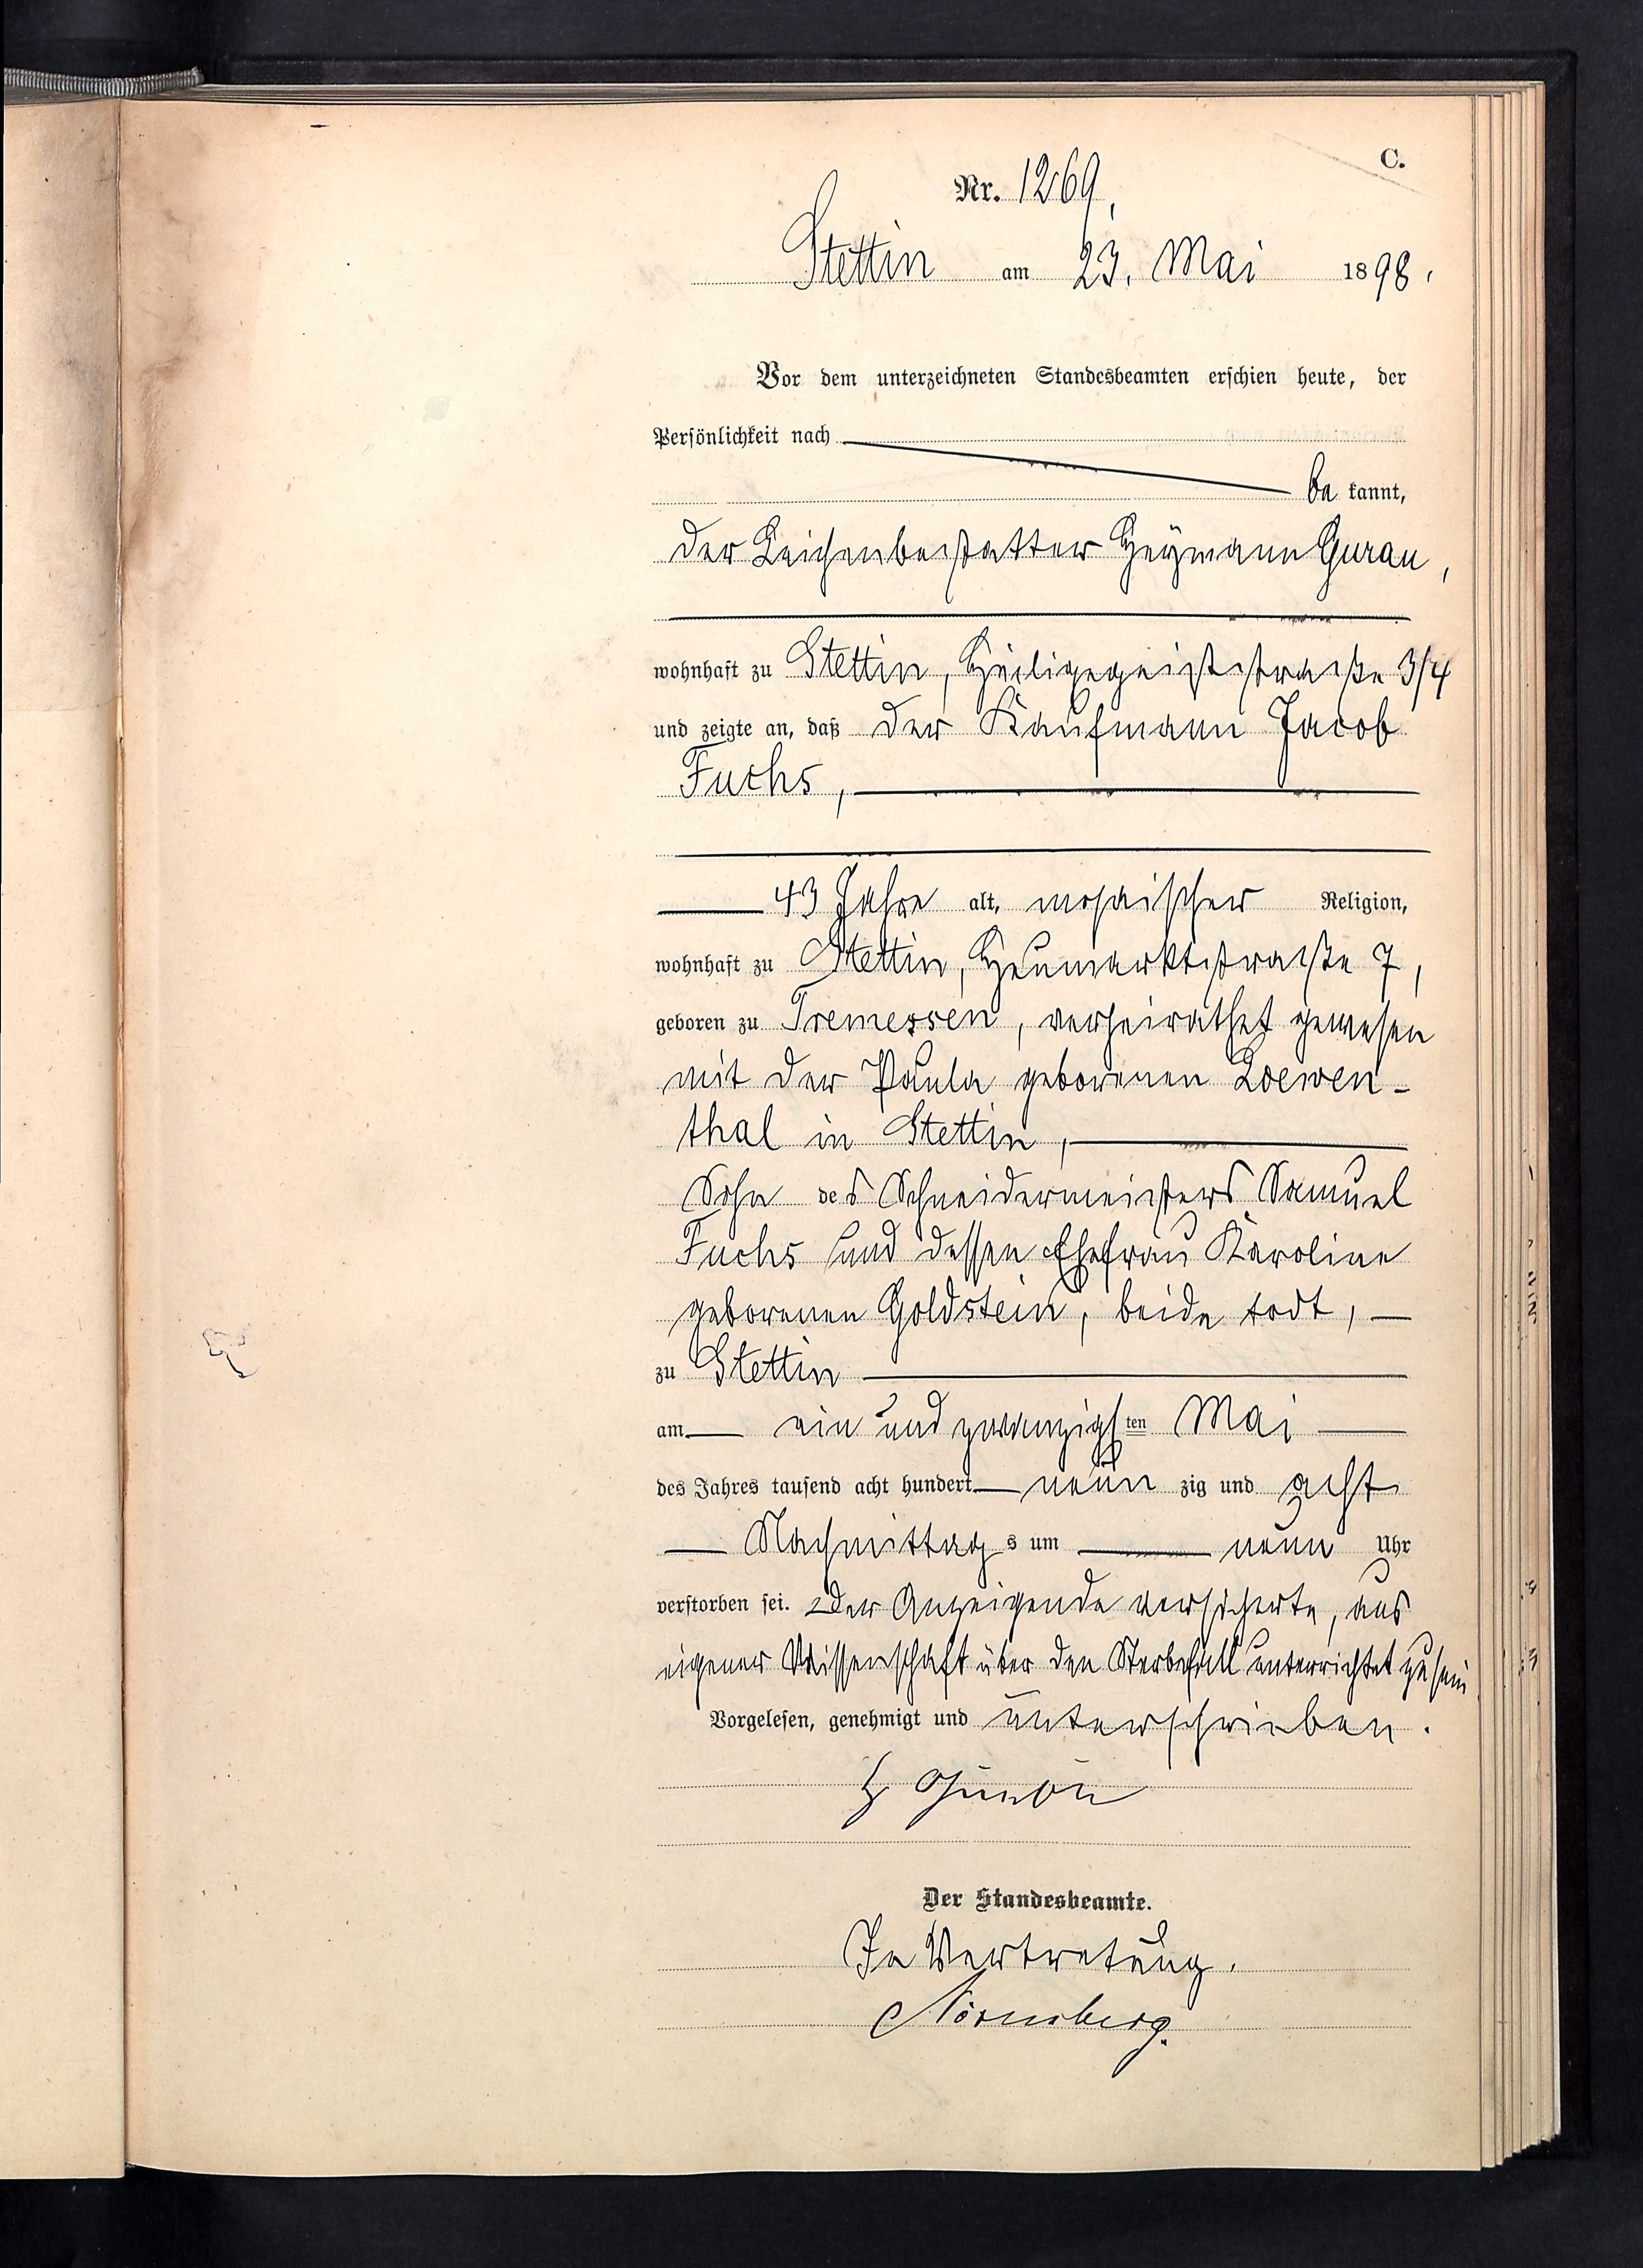 C.
Nr. 1269.
Stettin am 23. Mai 1898.
Vor dem unterzeichneten Standesbeamten erschien heute, der
Persönlichkeit nach
be kannt,
der Leichenbestatter Heymann Gurau,
wohnhaft zu Stettin, Heiligegeiststraße 3/4
und zeigte an, daß der Kaufmann Jacob
Fuchs,
43 Jahre alt, mosaischer Religion,
wohnhaft zu Stettin, Heumarktstraße 7,
geboren zu Tremessen, verheirathet gewesen
mit der Paula geborenen Loewen-
thal in Stettin,
Sohn des Schneidermeisters Samuel
Fuchs und dessen Ehefrau Karoline
geborenen Goldstein, beide todt,
zu Stettin
am ein und zwanzigsten Mai
des Jahres tausend acht hundert neun zig und acht
Nachmittags um neun Uhr
verstorben sei. Der Anzeigende versicherte, aus
eigener Wissenschaft über den Sterbefall unterrichtet zu sein
Vorgelesen, genehmigt und unterschrieben.
H Gurau
Der Standesbeamte.
In Vertretung.
Nörenberg.